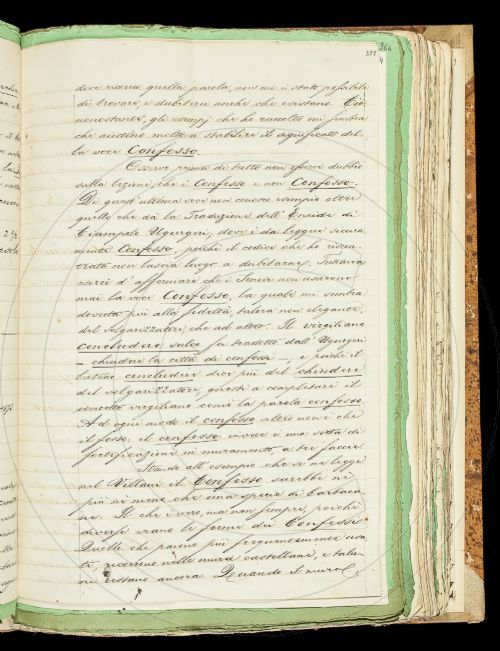 364
381
4
dove ricorra quella parola, non mi è stato possibile
di trovare, e dubiterei anche che esistano. Cio
nonostante, gli esempj che ho raccolto mi sembra
che aiutino molto a stabilire il significato del-
la voce Confesso.
Osservo prima di tutto non esservi dubbio
sulla lezione, che è Confesso e non Confosso.
Di quest'ultima voce non conosco esempio oltre
quello che dà la Traduzione dell'Eneide di
Ciampolo Ugurgeri, dove è da leggere sicura
mente Confosso, poichè il codice che ho riscon-
trato non lascia luogo a dubitarne. Tuttavia
oserei d'affermare che i Senesi non usarono
mai la voce Confosso, la quale mi sembra
dovuta più alla fedeltà, talora non elegante,
del volgarizzatore, che ad altro. Il virgiliano
concludere sulco fu tradotto dall'Ugurgeri
— chiudere la città di confossi —, e poichè il
latino concludere dice più del chiudere
del volgarizzatore, questi a completare il
concetto virgiliano coniò la parola confosso.
Ad ogni modo il confosso altro non è che
il fosso: il confesso invece è una sorta di
fortificazione in muramento, a tre faccie.
Stando all'esempio che se ne legge
nel Villani il Confesso sarebbe nè
più nè meno che una specie di barbaca
ne. Il che è vero, ma non sempre, poichè
diverse erano le forme dei Confessi.
Quelle che paiono più frequentemente usa
te, ricorrono nelle mura castellane, e talu-
ni restano ancora. Quando il muro